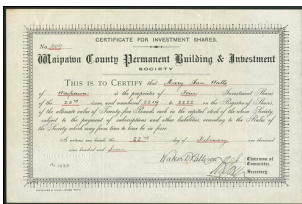 CERTIFICATE FOR INVESTMENT SHARES.
No.
Waipawa County Permanent Building & Investment
SOCIETY
THIS IS TO CERTIFY that Mary Ann Watts
of Waipawa is the proprietor of Four Investment Shares
of the 25th issue, and numbered 2219 to 2222 in the Register of Shares,
of the ultimate value of Twenty-five Pounds each in the capital stock of the above Society,
subject to the payment of subscriptions and other liabilities according to the Rules of
the Society which may from time to time be in force.
As witness our hands this 22nd day of February one thousand
nine hundred and Seven
Chairman of
Committee.
Secretary.